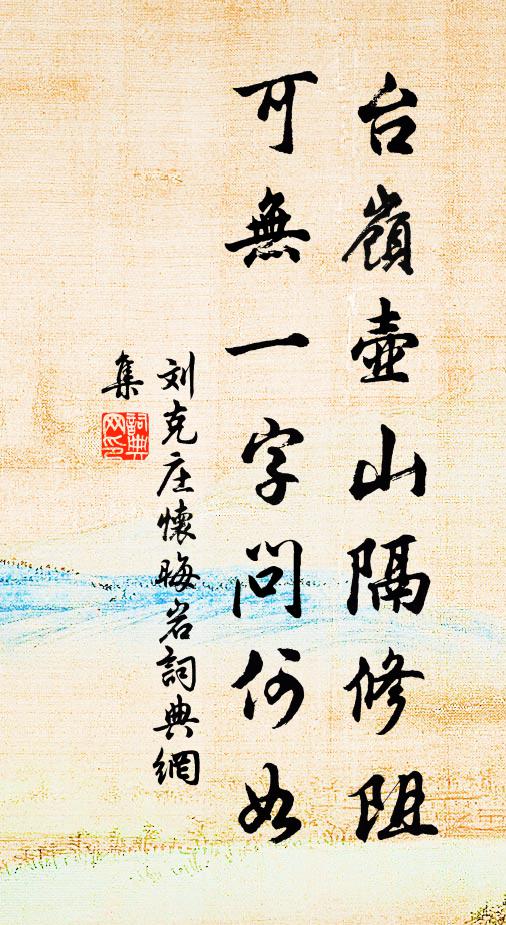 台嶺壺山隔修阻
可無一字問何如
刘克庄懷晦岩詞典網
集
詞典网印